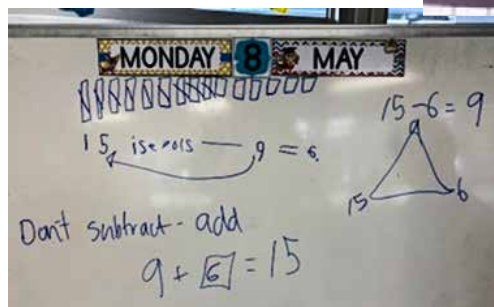 MONDAY 8 MAY
15 - 6 = 9
15 — 9 = 6.
9
15 6
Don't subtract - add
9 + 6 = 15